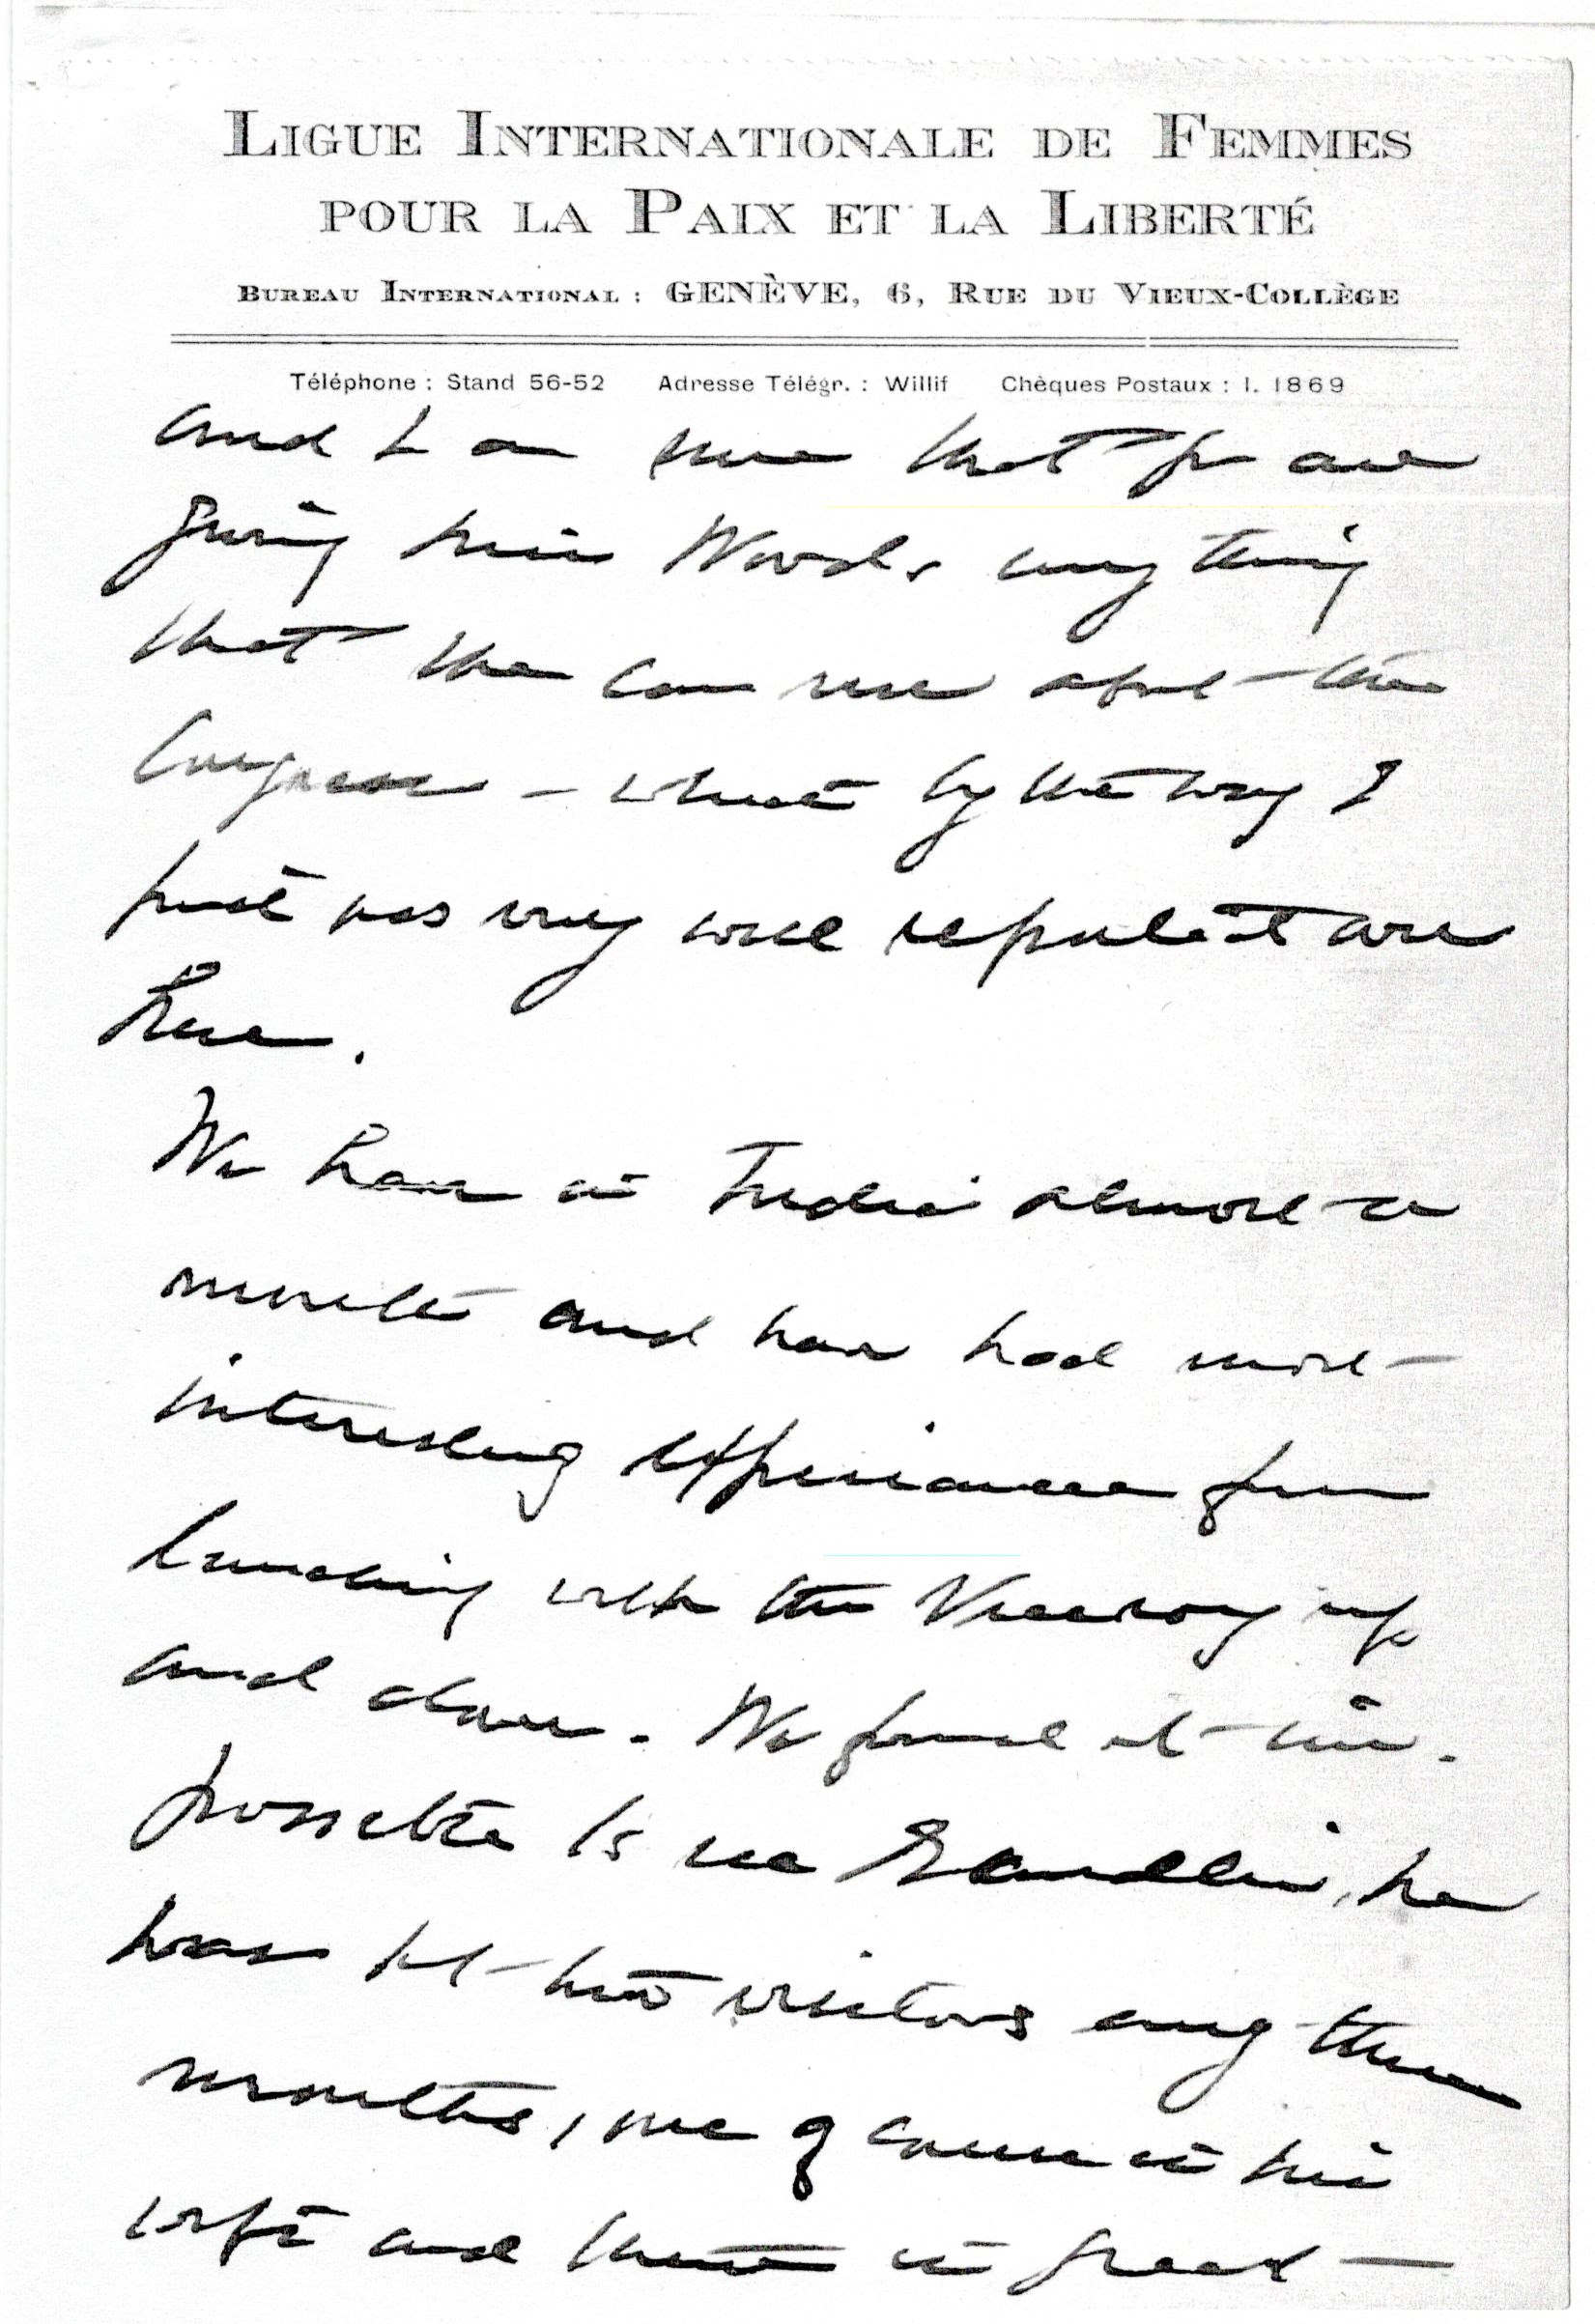 LIGUE INTERNATIONALE DE FEMMES
POUR LA PAIX ET LA LIBERTÉ
BUREAU INTERNATIONAL : GENÈVE, 6, RUE DU VIEUX-COLLÈGE
Téléphone : Stand 56-52 Adresse Télégr. : Willif Chèques Postaux : I. 1869
and I am sure that you are
giving Miss Woods anything
that she can use about the
Congress - which by the way I
find was very well reported over
here.
We have in India almost a
month and have had most
interesting experiences from
lunching with the Viceroy up
and down. We found it im-
possible to see Gandhi, he
has but two visitors every three
months, one of course is his
wife and there is great